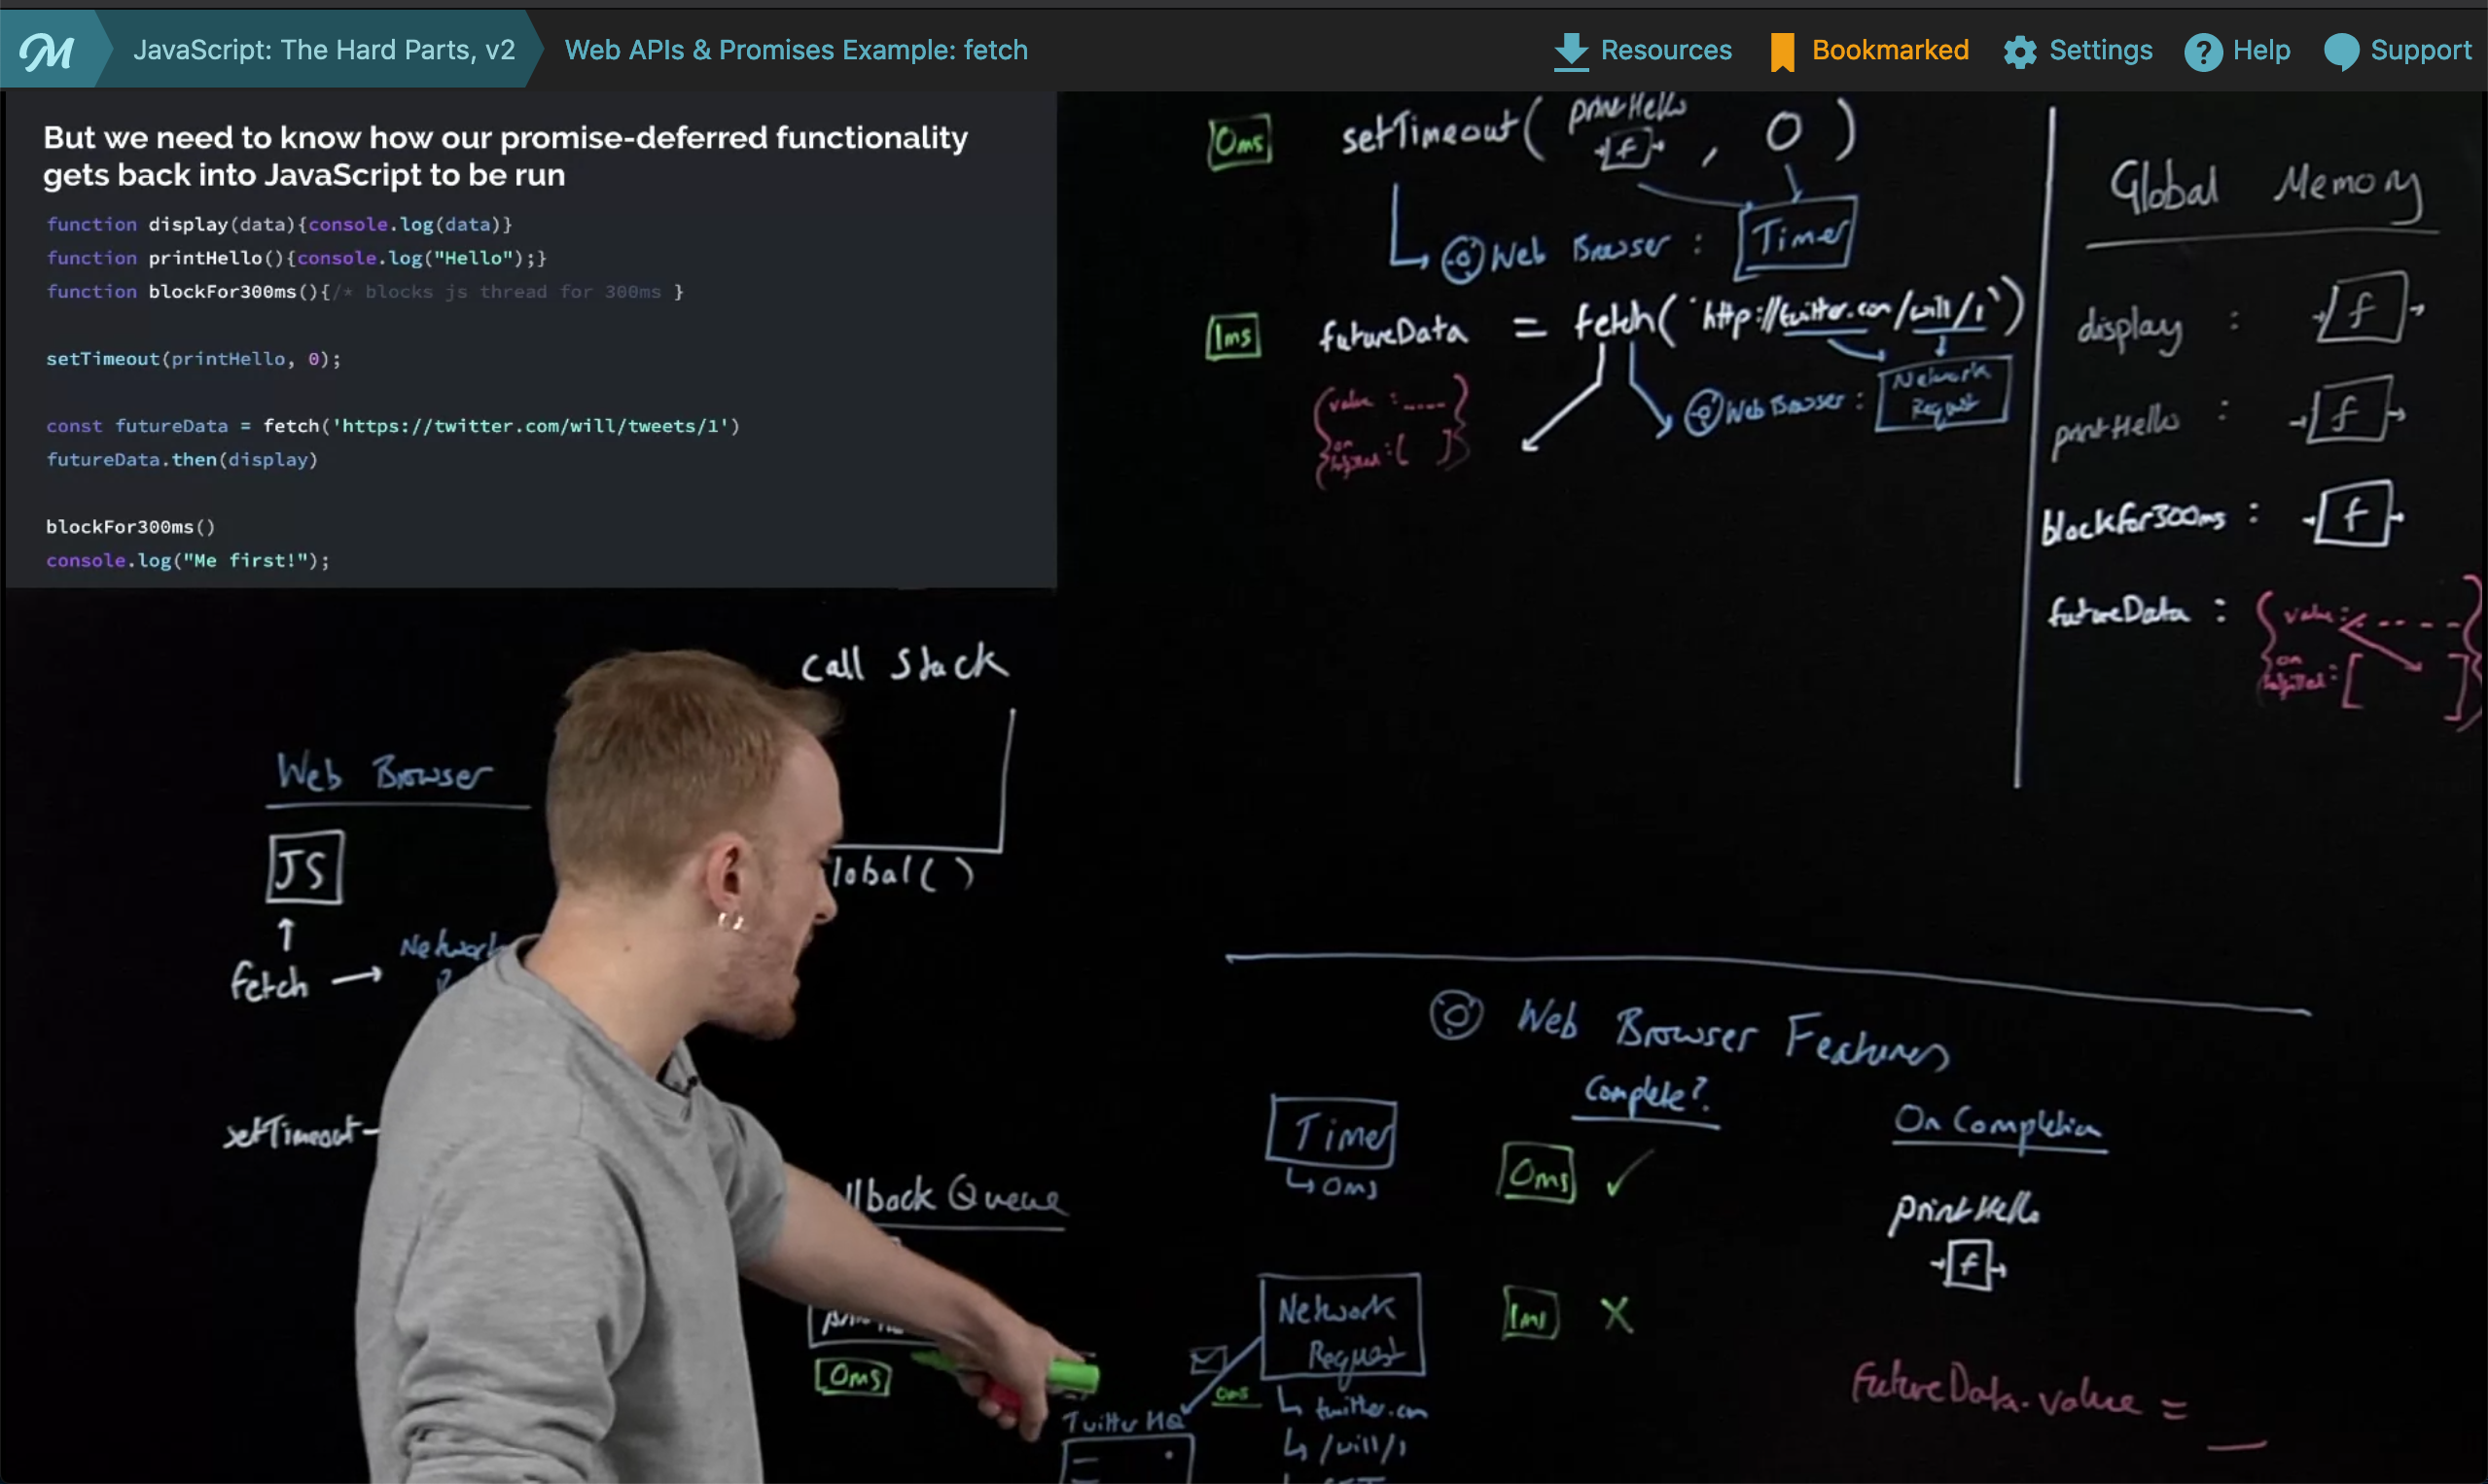 M JavaScript: The Hard Parts, v2 Web APIs & Promises Example: fetch Resources Bookmarked Settings ? Help Support
But we need to know how our promise-deferred functionality
gets back into JavaScript to be run
function display(data){console.log(data)}
function printHello(){console.log("Hello");}
function blockFor300ms(){/* blocks js thread for 300ms }
setTimeout(printHello, 0);
const futureData = fetch('https://twitter.com/will/tweets/1')
futureData.then(display)
blockFor300ms()
console.log("Me first!");
0ms setTimeout( printHello
f , 0 )
Web Browser : Timer
1ms futureData = fetch('http://twitter.com/will/1')
{value : .....
on
fulfilled : [ ]}
Web Browser : Network
Request
Global Memory
display : f
printHello : f
blockfor300ms : f
futureData : {value: - - - -
on
fulfilled: [ ]}
Call Stack
lobal( )
Web Browser
JS
fetch → Network
setTimeout
llback Queue
0ms
Web Browser Features
Complete? On Completion
Timer
↳ 0ms
0ms ✓
printHello
f
Network
Request
1ms X
0ms
Twitter HQ
↳ twitter.com
↳ /will/1
futureData.value = __